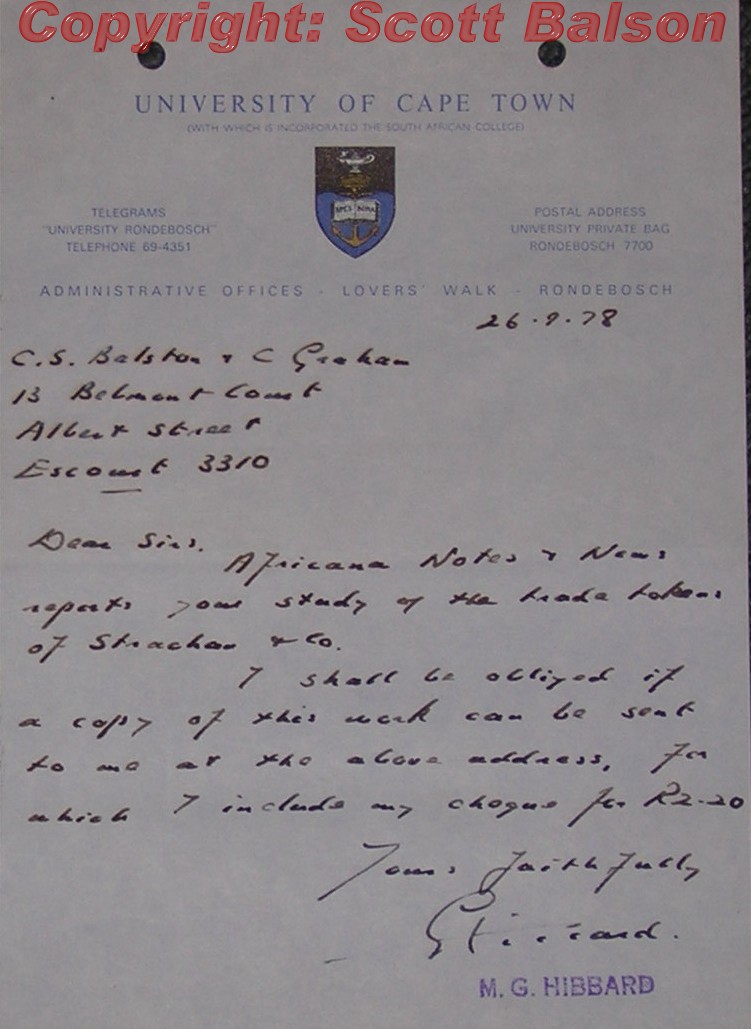 Copyright: Scott Balson
UNIVERSITY OF CAPE TOWN
(WITH WHICH IS INCORPORATED THE SOUTH AFRICAN COLLEGE)
SPES BONA
TELEGRAMS
"UNIVERSITY RONDEBOSCH"
TELEPHONE 69-4351
POSTAL ADDRESS
UNIVERSITY PRIVATE BAG
RONDEBOSCH 7700
ADMINISTRATIVE OFFICES - LOVERS' WALK - RONDEBOSCH
26-9-78
C.S. Balston & C Graham
13 Belmont Court
Albert Street
Escourt 3310
Dear Sirs.
Africana Notes & News
reports your study of the trade tokens
of Strachan & Co.
I shall be obliged if
a copy of this work can be sent
to me at the above address, for
which I include my cheque for R2-20
Yours faithfully
M. G. HIBBARD